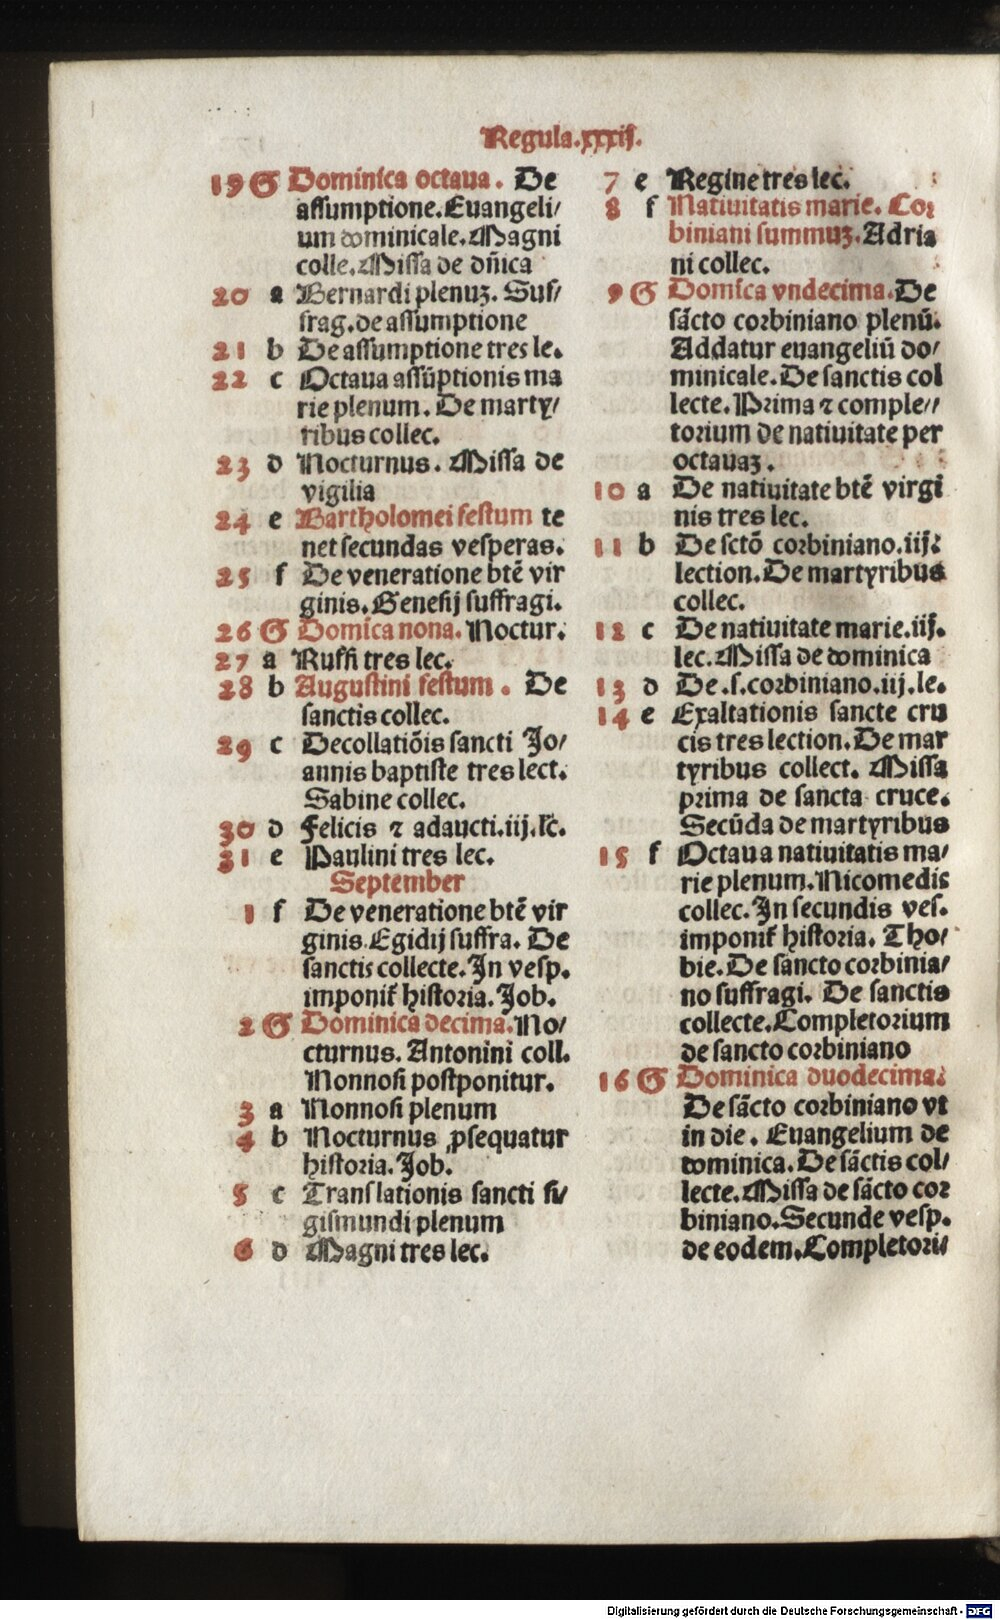 Regula.xxxij.
19 G Dominica octaua. De
assumptione.Euangeli/
um dominicale.Magni
colle.Missa de dñica
20 a Bernardi plenuꝫ. Suf/
frag.de assumptione
21 b De assumptione tres le.
22 c Octaua assũptionis ma
rie plenum. De marty/
ribus collec.
23 d Nocturnus. Missa de
vigilia
24 e Bartholomei festum te
net secundas vesperas.
25 f De veneratione btẽ vir
ginis.Genesij suffragi.
26 G Domĩca nona. Noctur.
27 a Ruffi tres lec.
28 b Augustini festum . De
sanctis collec.
29 c Decollatiõis sancti Jo/
annis baptiste tres lect.
Sabine collec.
30 d Felicis ⁊ adaucti.iij.lc̃.
31 e Paulini tres lec.
September
1 f De veneratione btẽ vir
ginis.Egidij suffra. De
sanctis collecte.In vesp.
imponit̃ historia.Job.
2 G Dominica decima.No/
cturnus. Antonini coll.
Nonnosi postponitur.
3 a Nonnosi plenum
4 b Nocturnus ꝓsequatur
historia.Job.
5 c Translationis sancti si/
gismundi plenum
6 d Magni tres lec.
7 e Regine tres lec.
8 f Natiuitatis marie. Coꝛ
biniani summuꝫ.Adria
ni collec.
9 G Domĩca vndecima.De
sãcto coꝛbiniano plenũ.
Addatur euangeliũ do/
minicale.De sanctis col
lecte.Pꝛima ⁊ comple//
toꝛium de natiuitate per
octauaꝫ.
10 a De natiuitate btẽ virgi
nis tres lec.
11 b De sctõ coꝛbiniano.iij.
lection.De martyribus
collec.
12 c De natiuitate marie.iij.
lec.Missa de dominica
13 d De.s.coꝛbiniano.iij.le.
14 e Exaltationis sancte cru
cis tres lection.De mar
tyribus collect. Missa
pꝛima de sancta cruce.
Secũda de martyribus
15 f Octaua natiuitatis ma/
rie plenum.Nicomedis
collec.In secundis ves.
imponit̃ historia. Tho/
bie.De sancto coꝛbinia/
no suffragi. De sanctis
collecte.Completoꝛium
de sancto coꝛbiniano
16 G Dominica duodecima.
De sãcto coꝛbiniano vt
in die . Euangelium de
dominica.De sãctis col/
lecte.Missa de sãcto coꝛ
biniano.Secunde vesp.
de eodem.Completoꝛi/
Digitalisierung gefördert durch die Deutsche Forschungsgemeinschaft - DFG